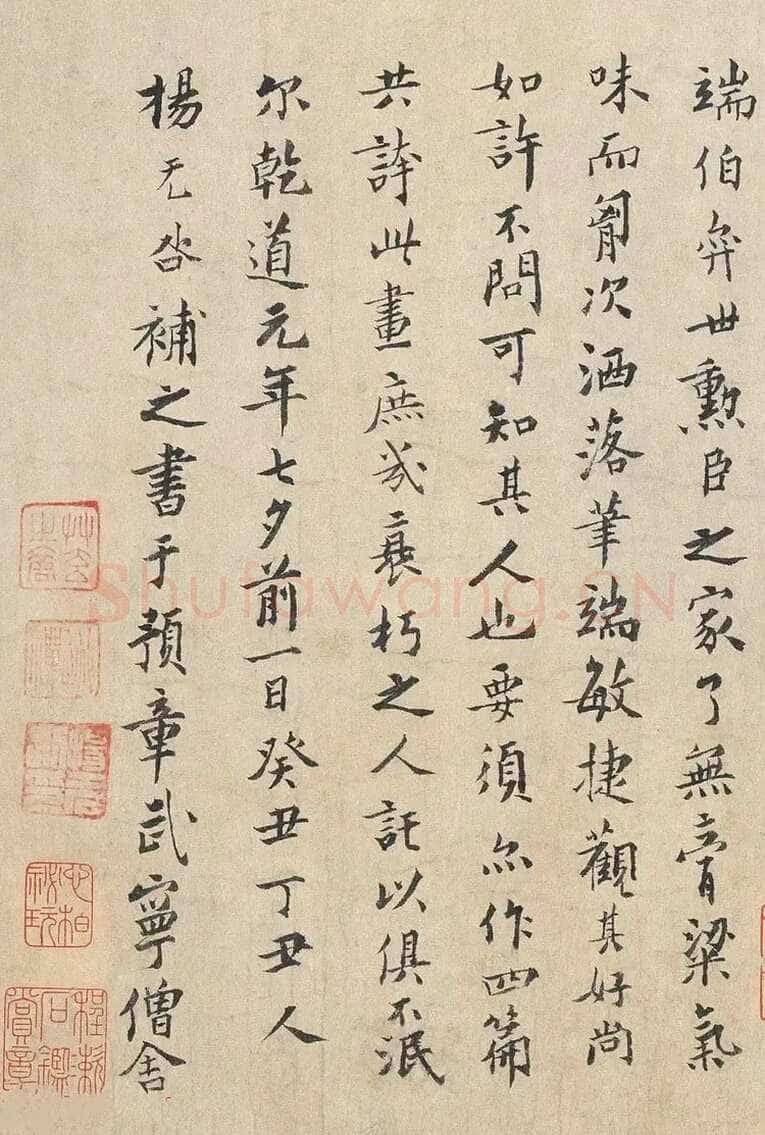 端伯弈世勳臣之家了無膏粱氣
味而胷次洒落筆端敏捷觀其好尚
如許不問可知其人也要須亦作四篇
共誇此畫庶幾衰朽之人託以俱不泯
尔乾道元年七夕前一日癸丑丁丑人
楊无咎補之書于預章武寧僧舍
Shufawang.CN